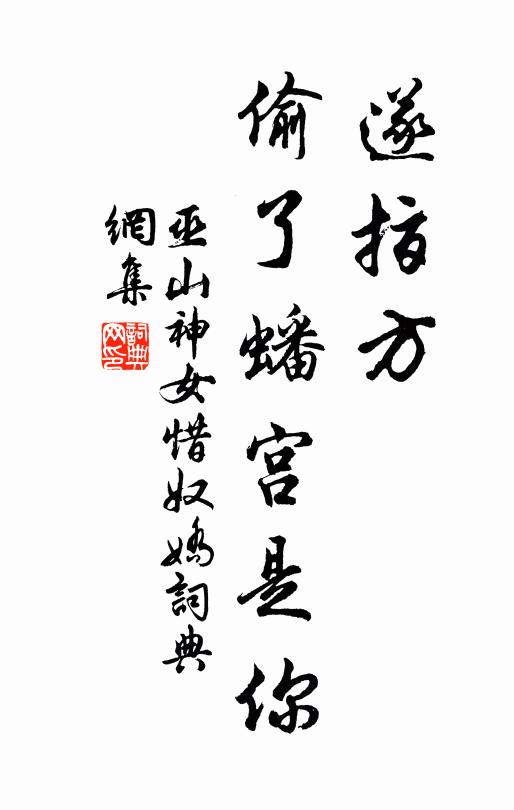 遂指方
偷了蟠宫是你
巫山神女惜奴娇詞典
網集
詞典
网印